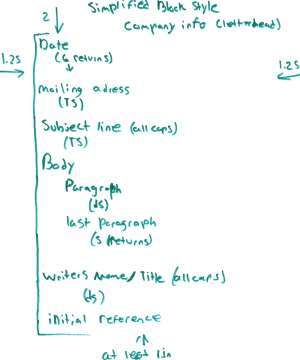 Simplified Block Style
2
Company info (letterhead)
Date
(6 returns)
1.25
1.25
mailing adress
(TS)
Subject line (all caps)
(TS)
Body
Paragraph
(ds)
last paragraph
(5 returns)
writers name/Title (all caps)
(ds)
initial reference
at least 1 in